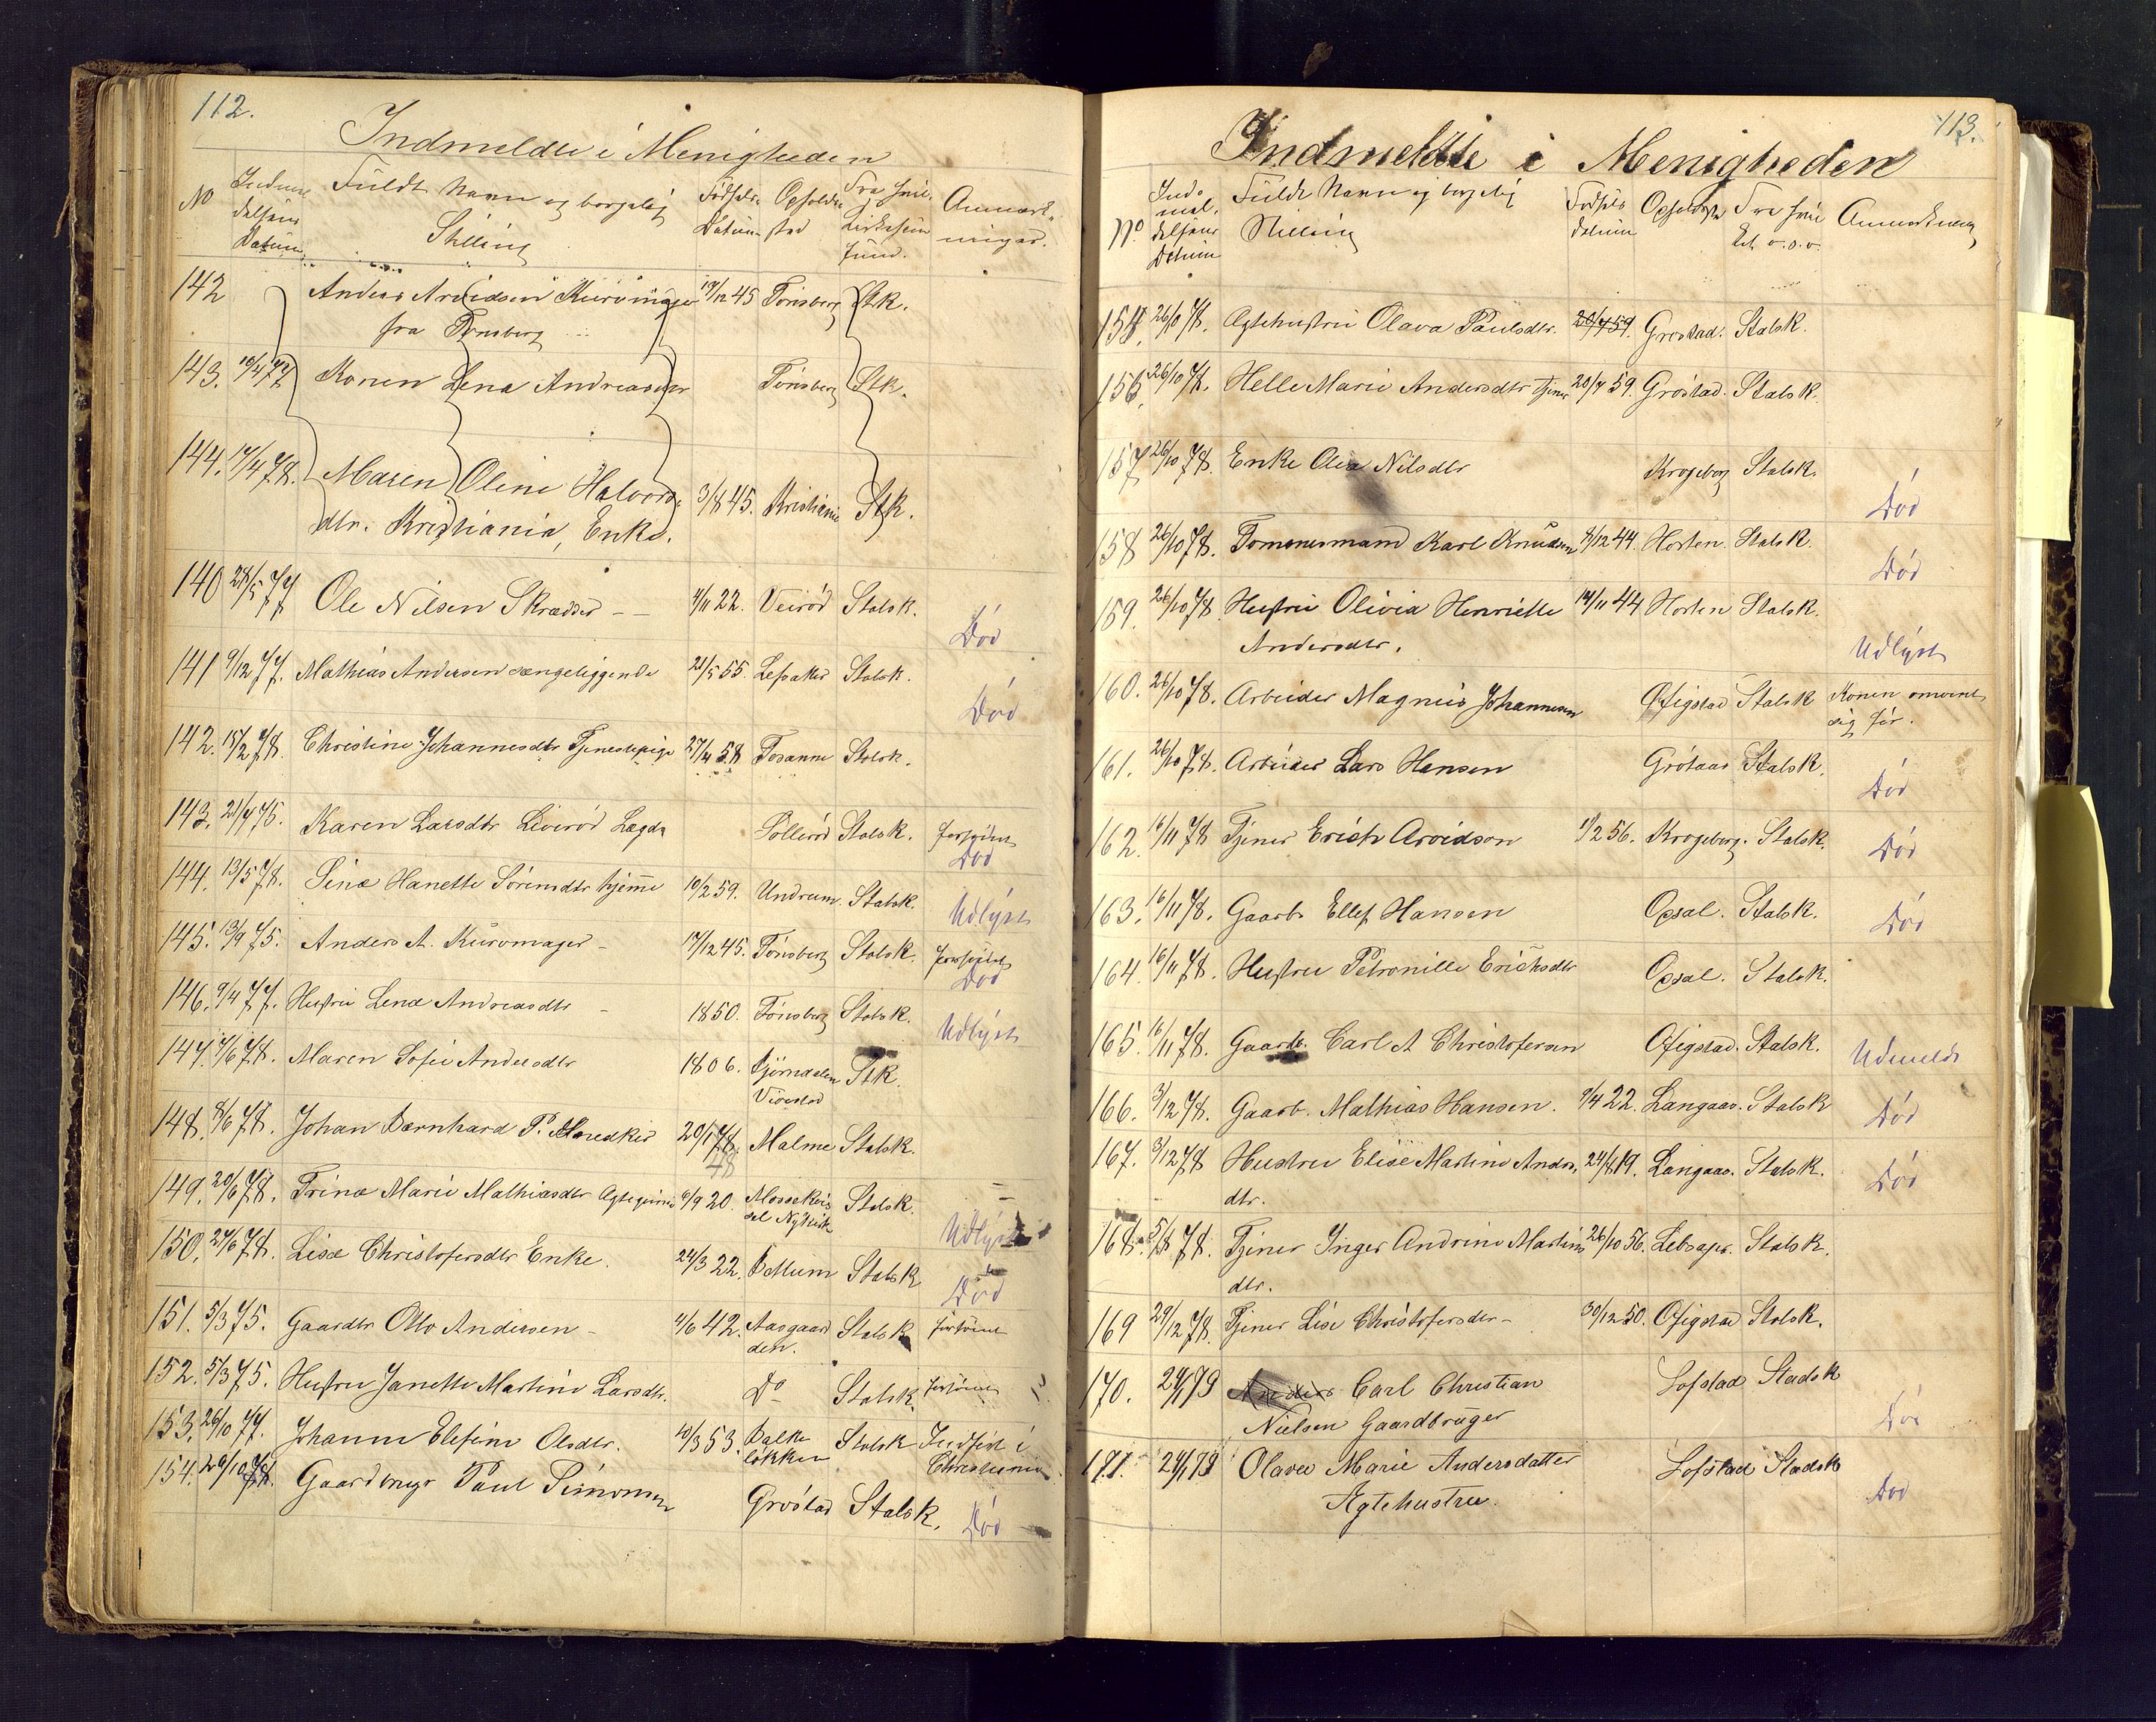 112.
Indmeldte i Menigheden
No Indme delsens Datum Fuldt Navn og borgelig Stilling Fødsels Datum Opholds stad Fra hvil. Kirkesam fund. Anmærk- ninger.
142 Anders Arvidsen Kurvmager 17/12 45 Tønsberg Stk.
fra Tønsberg
143. 10/4 77 Konen Lena Andreasdtr Tønsberg Stk.
144. 17/4 78. Maren Oline Halvors- 3/8 45. Kristiania Stk.
dtr. Kristiania, Enke.
140 28/5 77 Ole Nilsen Skrædder 4/11 22. Veirød Statsk. Død
141 9/12 77. Mathias Andersen sengeliggende 21/5 55. Lefsaker Statsk. Død
142. 15/2 78. Christine Johannesdtr Tjenestepige 27/4 58 Fosanne Statsk.
143. 21/4 76. Karen Larsdtr Liverød Lægds Sollerød Statsk. Død
144. 13/5 78. Sina Hanette Sørensdtr hjemme 10/2 59. Undrum. Statsk. Udlyst
145. 13/9 75. Anders A. Kurvmager 17/12 45. Tønsberg Statsk. Død
146. 9/4 77. Hustru Lena Andreasdtr 1850. Tønsberg Statsk. Udlyst
147. 7/6 78. Maren Sofie Andersdtr 1806. Bjørndalen Stk.
Vivestad
148. 8/6 78. Johan Bernhard P. 20/1 48. Malmø Statsk.
48
149. 20/6 78. Trina Marie Mathiasdtr 6/9 20. Statsk. Udlyst
150. 27/6 78. Lisa Christofersdtr Enke. 24/3 22. Bettum Statsk Død
151. 5/3 75. Gaardbr Otto Andersen 4/6 42. Aasgaard Statsk
den.
152. 5/3 75. Hustru Janette Martine Larsdtr. Do Statsk.
153. 26/10 77. Johanne Elefine Olsdtr. 10/3 53. Balke Statsk Indfiet i
løkken Christiania
154. 26/10 78. Gaardbruger Paul Simonsen Grøstad Statsk. Død
113.
Indmeldte i Menigheden
No. Ind- mel. delsens Datum Fuldt Navn og borgelig Stilling Fødsels datum Opholdste Fra hvilket o.s.v. Anmerkning
155. 26/10 78. Egtehustru Olava Paulsdtr. 20/4 59. Grøstad. Statsk.
156. 26/10 78. Helle Marie Andersdtr Tjener 20/4 59. Grøstad. Statsk.
157 26/10 78. Enke Olea Nilsdtr Krogeborg Statsk. Død
158 26/10 78. Tømmermand Karl Knudsen 8/12 44. Horten. Statsk. Død
159. 26/10 78. Hustru Olivia Henriette 14/11 44 Horten Statsk. Udlyst
Andersdtr.
160. 26/10 78. Arbeider Magnus Johannesen Ofigstad Statsk Konen omvent
sig før.
161. 26/10 78. Arbeider Lars Hansen Grøtaas Statsk. Død
162. 16/11 78 Tjener Erich Arvidson 1/2 56. Krogeberg. Statsk. Død
163. 16/11 78. Gaarb Ellef Hansen Opsal. Statsk. Død
164. 16/11 78. Hustru Petronille Erichsdtr Opsal. Statsk.
165. 16/11 78. Gaarb. Carl A Christofersen Ofigstad. Statsk. Udmeldt
166. 3/12 78. Gaarb. Mathias Hansen. 9/4 22. Langaas. Statsk Død
167. 3/12 78 Hustru Elise Martine Anders. 24/8 19. Langaas. Statsk. Død
dtr.
168. 5/8 78. Tjener Inger Andrine Martins 26/10 56. Statsk.
dtr.
169 29/12 78. Tjener Lise Christofersdtr 30/12 50. Ofigstad Statsk.
170. 24/1 79 Anders Carl Christian Lofstad Stadsk Død
Nielsen Gaardbruger
171. 24/1 79 Olava Marie Andersdatter Lofstad Stadsk Død
Egtehustru.